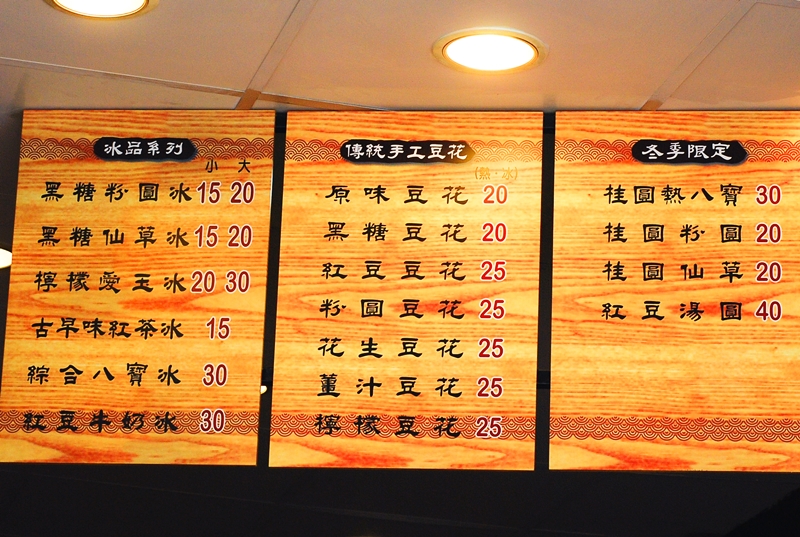 冰品系列
小 大
黑糖粉圓冰 15 20
黑糖仙草冰 15 20
檸檬愛玉冰 20 30
古早味紅茶冰 15
綜合八寶冰 30
紅豆牛奶冰 30
傳統手工豆花
(熱·冰)
原味豆花 20
黑糖豆花 20
紅豆豆花 25
粉圓豆花 25
花生豆花 25
薑汁豆花 25
檸檬豆花 25
冬季限定
桂圓熱八寶 30
桂圓粉圓 20
桂圓仙草 20
紅豆湯圓 40